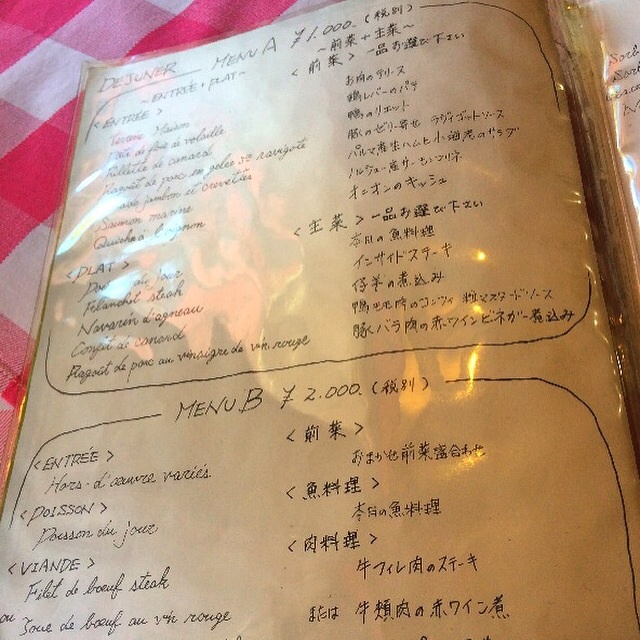 DEJUNER MENU A ¥1.000.(税別)
~ENTRÉE+PLAT~ ~前菜+主菜~
<ENTRÉE> <前菜>一品お選び下さい
Terrine Maison お肉のテリーヌ
Pâté de foie de volaille 鶏レバーのパテ
Rillette de canard 鴨のリエット
de porc en gelée sce ravigote 豚のゼリー寄せ ラヴィゴットソース
jambon et crevettes パルマ産生ハムと小海老のサラダ
Saumon marine ノルウェー産サーモンマリネ
Quiche à l'oignon オニオンのキッシュ
<PLAT> <主菜>一品お選び下さい
du jour 本日の魚料理
steak インサイドステーキ
Navarin d'agneau 仔羊の煮込み
Confit de canard 鴨モモ肉のコンフィ 粒マスタードソース
Ragoût de porc au vinaigre de vin rouge 豚バラ肉の赤ワインビネガー煮込み
MENU.B ¥2.000.(税別)
<ENTRÉE> <前菜>
Hors-d'œuvre variés おまかせ前菜盛合わせ
<POISSON> <魚料理>
Poisson du jour 本日の魚料理
<VIANDE> <肉料理>
Filet de bœuf steak 牛フィレ肉のステーキ
ou Joue de bœuf au vin rouge または 牛頬肉の赤ワイン煮